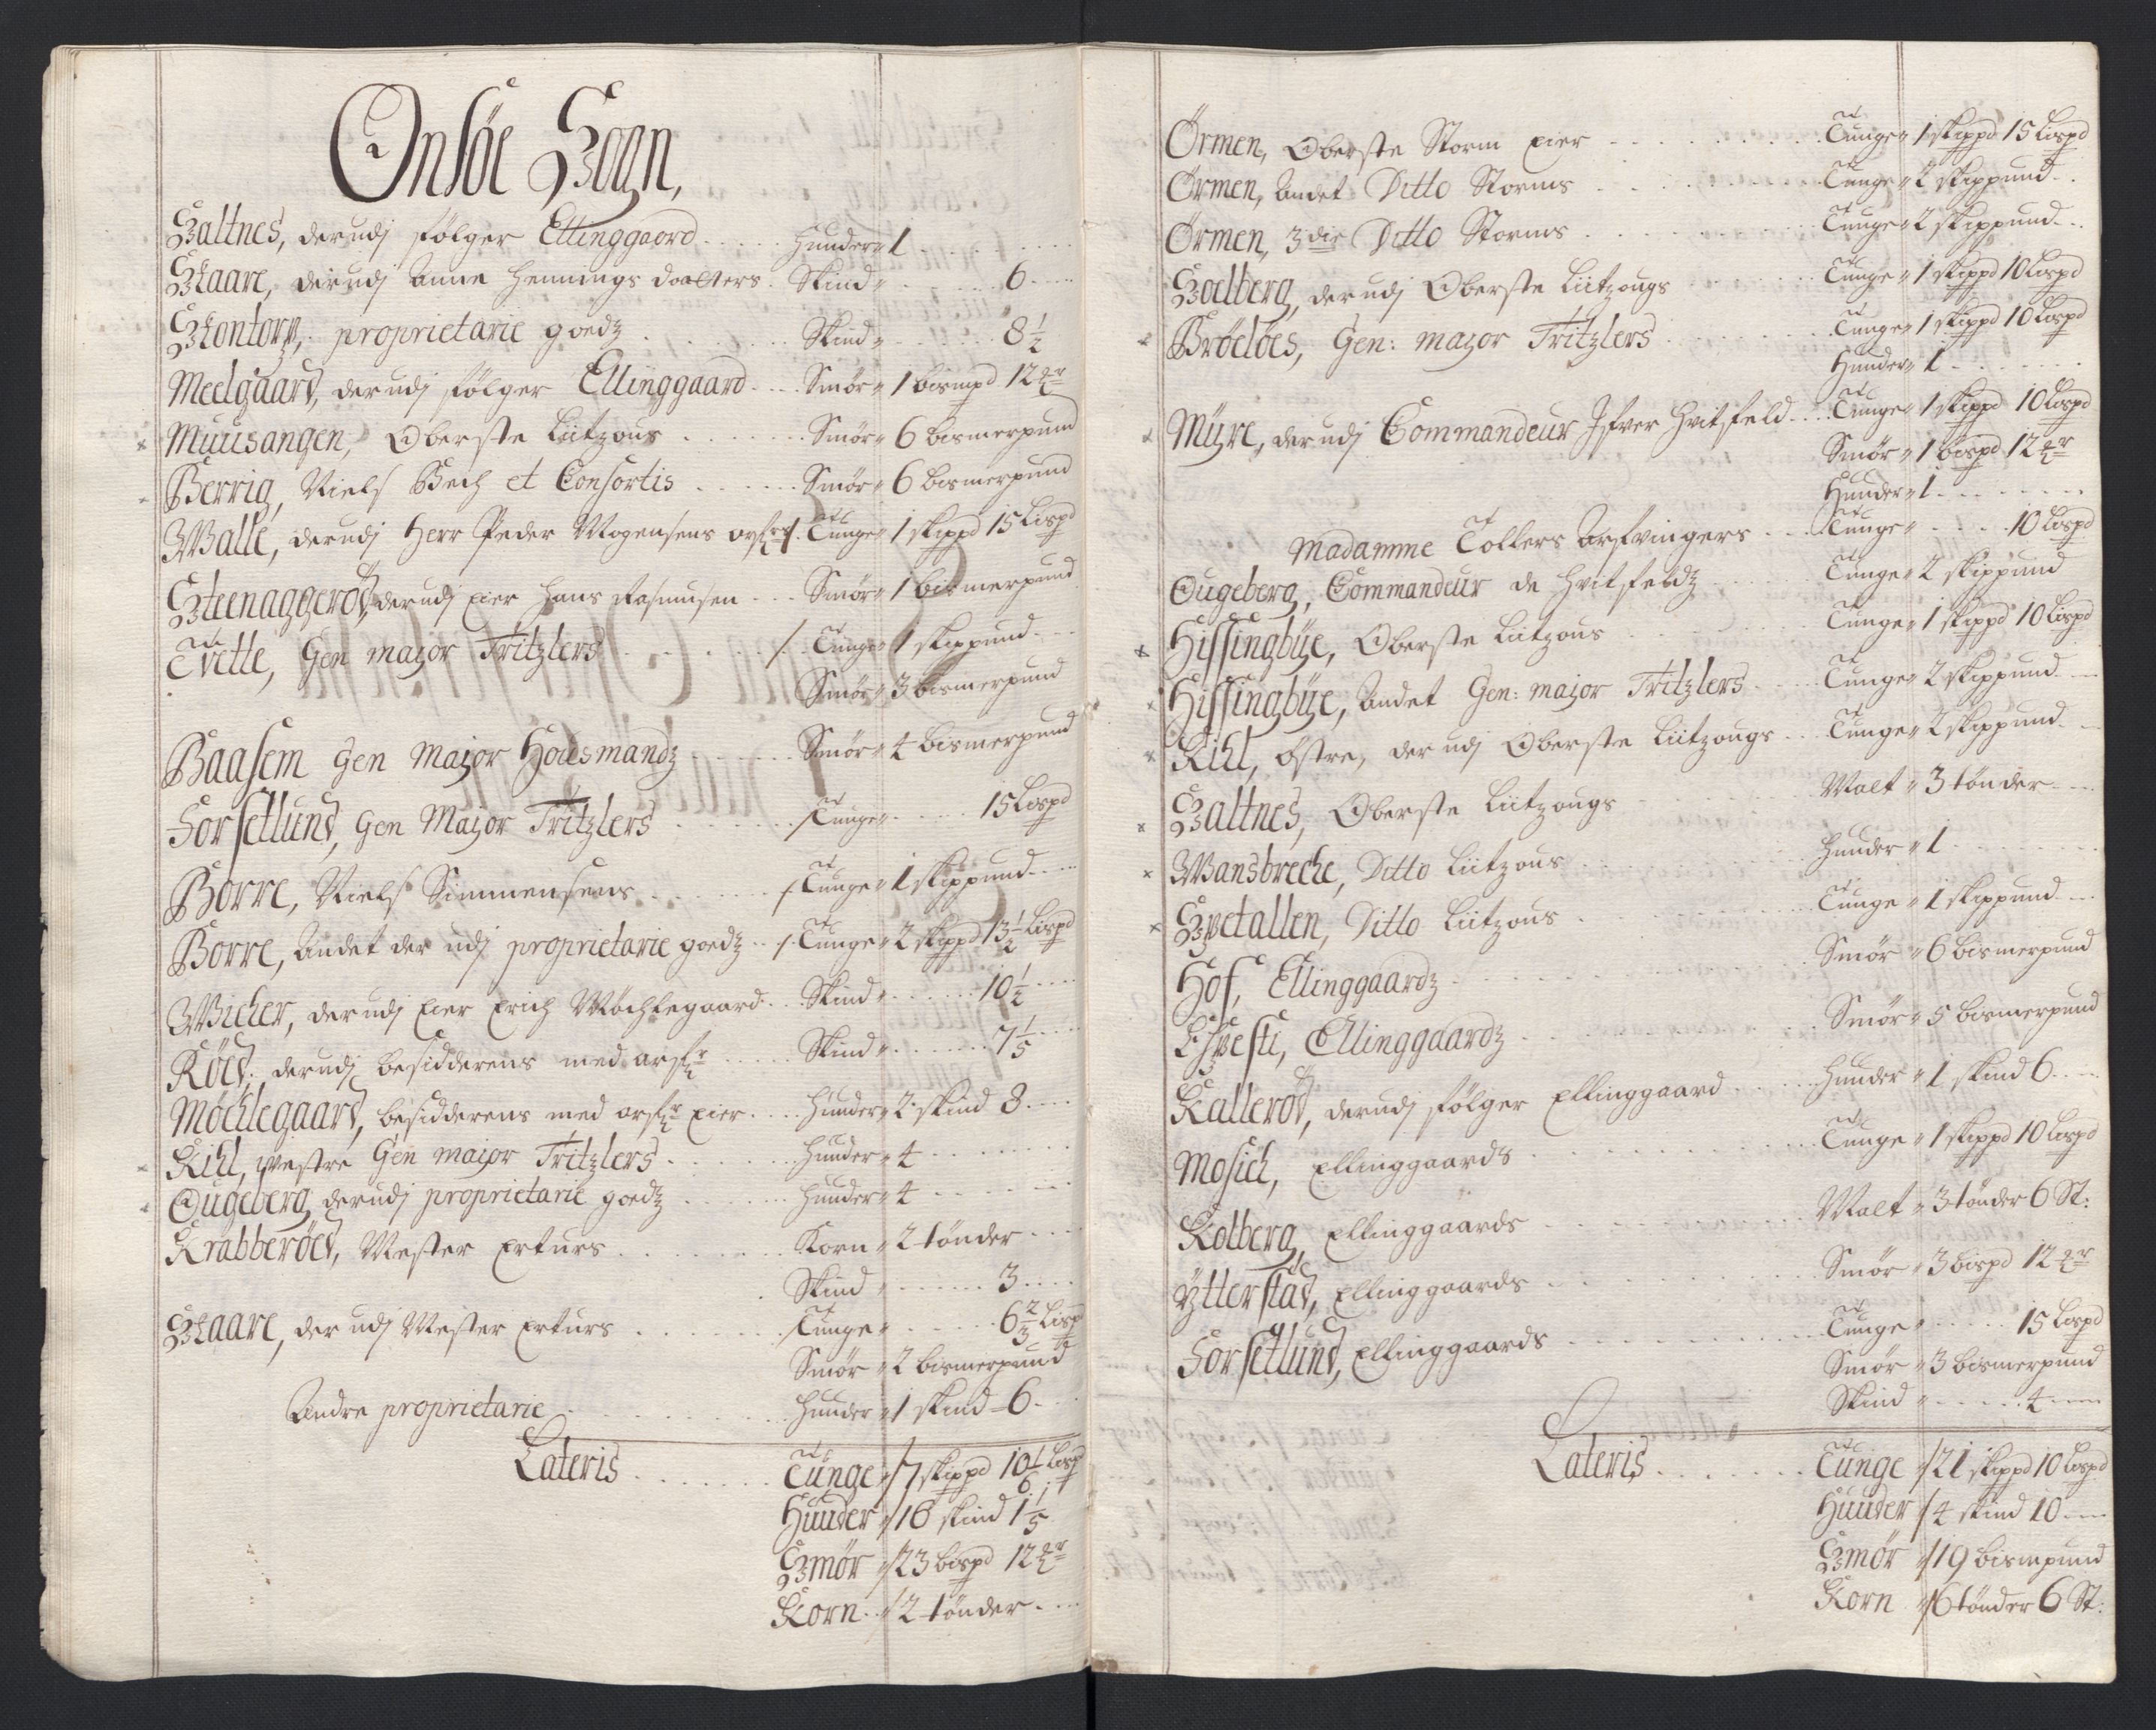 Onsöe Sogn,
Saltnes, derudj følger Ellinggaard . . . . Huuder " 1 . . . .
Skaare, derudj Anne Hennings daatters . Skind " . . . 6 . . .
Skontorp, proprietarie goedz . . . . Skind " . . . . 8 1/2
Meelgaard, derudj følger Ellinggaard . . . Smör " 1 bismpd 12 mr
Muusangen, Oberste Lützous . . . . Smör " 6 bismerpund
Berrig, Niels Bech et Consortis . . . . Smör " 6 bismerpund
Walle, derudj Herr Peder Mogensens arfr / Tunge " 1 skippd 15 Lispd
Steenaggeröd, derudj Eier Hans Rasmusen . . . Smör " 1 bismerpund
Tvette, Gen major Tritzlers . . . . / Tunge " 1 skippund . . .
Smör " 3 bismerpund
Baasem Gen Major Housmandz . . . . Smör " 4 bismerpund
Forsetlund, Gen Major Tritzlers . . . . / Tunge " . . . 15 Lispd
Borre, Niels Simmensens . . . . / Tunge " 1 skippund . . .
Borre, Andet derudj proprietarie goedz . . / Tunge " 2 skippd 13 1/2 Lispd
Wicher, derudj Eier Erich Möchlegaard . . Skind " . . . . 10 1/2 . . .
Röed, derudj besidderens med arfr . . . . Skind " . . . . 7 1/5 . . .
Möchlegaard, besidderens med arfr Eier . . . Huuder " 2 skind 8 . . .
Kihl, westre Gen major Tritzlers . . . . Huuder " 4 . . . .
Ougeberg, derudj proprietarie goedz . . . . Huuder " 4 . . . .
Krabberöed, Mester Erturs . . . . Korn " 2 tönder . . .
Skind " . . . . 3 . . .
Skaare, derudj Mester Erturs . . . . / Tunge " . . . 6 2/3 Lispd
Smör " 2 bismerpund
Andre proprietarie . . . . Huuder " 1 skind 6 . .
Lateris . . . . Tunge " / 7 skippd 10 1/6 Lispd
Huuder " / 16 skind 1 1/5
Smör " / 23 bispd 12 mr
Korn . . " / 2 tönder . . .
Örmen, Oberste Storm Eier . . . . Tunge " 1 skippd 15 Lispd
Örmen, Andet Ditto Storms . . . . Tunge " 2 skippund . .
Örmen, 3die Ditto Storms . . . . Tunge " 2 skippund . .
Soelberg, derudj Oberste Lützougs . . . . Tunge " 1 skippd 10 Lispd
Bröeloes, Gen: major Tritzlers . . . . Tunge " 1 skippd 10 Lispd
Huuder " 1 . . . .
Myre, derudj Commandeur Ifver Hvitfeld . . . Tunge " 1 skippd 10 Lispd
Smör " 1 bispd 12 mr
Huuder " 1 . . . .
Madamme Tollers Arfvinger . . . Tunge " . . . 10 Lispd
Ougeberg, Commandeur de Hvitfeldz . . . . Tunge " 2 skippund
Hissingbÿe, Oberste Lützous . . . . Tunge " 1 skippd 10 Lispd
Hissingbÿe, Andet Gen: major Tritzlers . . . Tunge " 2 skippund . . .
Kihl, Östre, derudj Oberste Lützougs . . . Tunge " 2 skippund . . .
Saltnes, Oberste Lützougs . . . . Malt " 3 tönder . . .
Wansbreche, Ditto Lützous . . . . Huuder " 1 . . . .
Spetallen, Ditto Lützous . . . . Tunge " 1 skippund . . .
Hof, Ellinggaardz . . . . Smör " 6 bismerpund
Espesti, Ellinggaardz . . . . Smör " 5 bismerpund
Kalleröd, derudj følger Ellinggaard . . . . Huuder " 1 skind 6 . . .
Mosich, Ellinggaards . . . . Tunge " 1 skippd 10 Lispd
Kolberg, Ellinggaards . . . . Malt " 3 tönder 6 St:
Ytterstad, Ellinggaards . . . . Smör " 3 bispd 12 mr
Forsetlund, Ellinggaards . . . . Tunge " . . . 15 Lispd
Smör " 3 bismerpund
Skind " . . . . 4 . . .
Lateris . . . . Tunge " / 21 skippd 10 Lispd
Huuder " / 4 skind 10 . . .
Smör " / 19 bismpund
Korn " / 6 tönder 6 St: